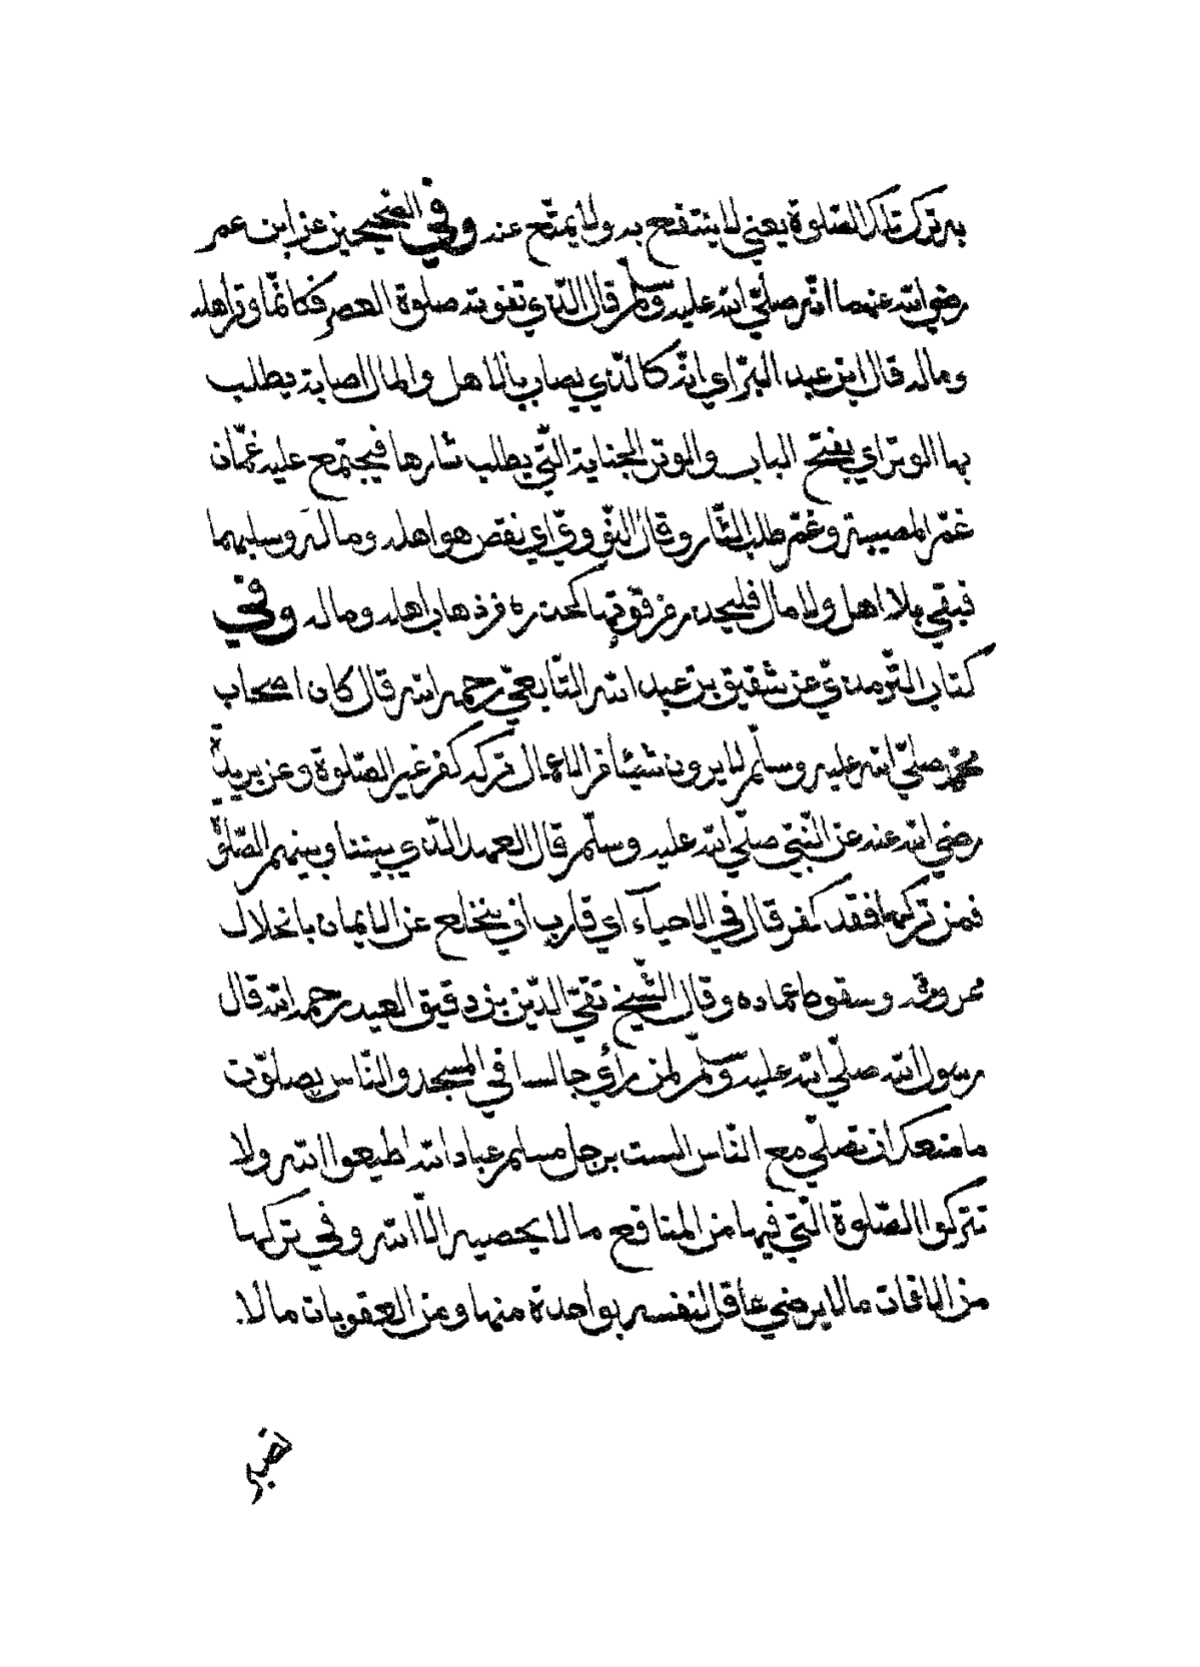 بترك تلك الصّلوة يعني لا ينتفع به ولا يمتّع عنه وفي الصّحيحين عن ابن عمر
رضي الله عنهما انّه صلّي الله عليه وسلّم قال الّذي تفوته صلوة العصر فكانّما وتر اهله
وماله قال ابن عبد البرّ اي انّه كالّذي يصاب بالاهل والمال اصابة يطلب
بها الوتر اي بفتح الباب والوتر الجناية الّتي يطلب ثارها فيجتمع عليه غمّان
غمّ المصيبة وغمّ طلب الثّار وقال النّووي اي نقص هو اهله وماله وسلبهما
فبقي بلا اهل ولا مال فليحذر من فوتها كحذره من ذهاب اهله وماله وفي
كتاب التّرمذي عن شقيق بن عبد الله التّابعي رحمه الله قال كان اصحاب
محمّد صلّي الله عليه وسلّم لا يرون شيئا من الاعمال تركه كفر غير الصّلوة وعن بريدة
رضي الله عنه عن النّبي صلّي الله عليه وسلّم قال العهد الّذي بيننا وبينهم الصّلوة
فمن تركها فقد كفر قال في الاحيآء اي قارب ان ينخلع عن الايمان بانحلال
عروته وسقوط عماده وقال الشّيخ تقيّ الدّين بن دقيق العيد رحمه الله قال
رسول الله صلّي الله عليه وسلّم لمن رأي جالسا في المسجد والنّاس يصلّون
ما منعك ان تصلّي مع النّاس الست برجل مسلم عباد الله اطيعوا الله ولا
تتركوا الصّلوة الّتي فيها من المنافع ما لا يحصيه الّا الله وفي تركها
من الافات ما لا يرضي عاقل لنفسه بواحدة منها ومن العقوبات ما لا